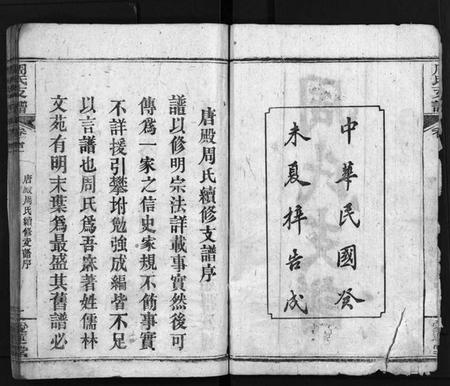 周氏支譜
中華民國癸
未夏梓告成
唐殿周氏續修支譜序
譜以修明宗法詳載事實然後可
傳為一家之信史家規不飭事實
不詳援引攀坿勉強成編皆不足
以言譜也周氏為吾寀著姓儒林
文苑有明末葉為最盛其舊譜必
周氏支譜
卷首
唐殿周氏續修支譜序